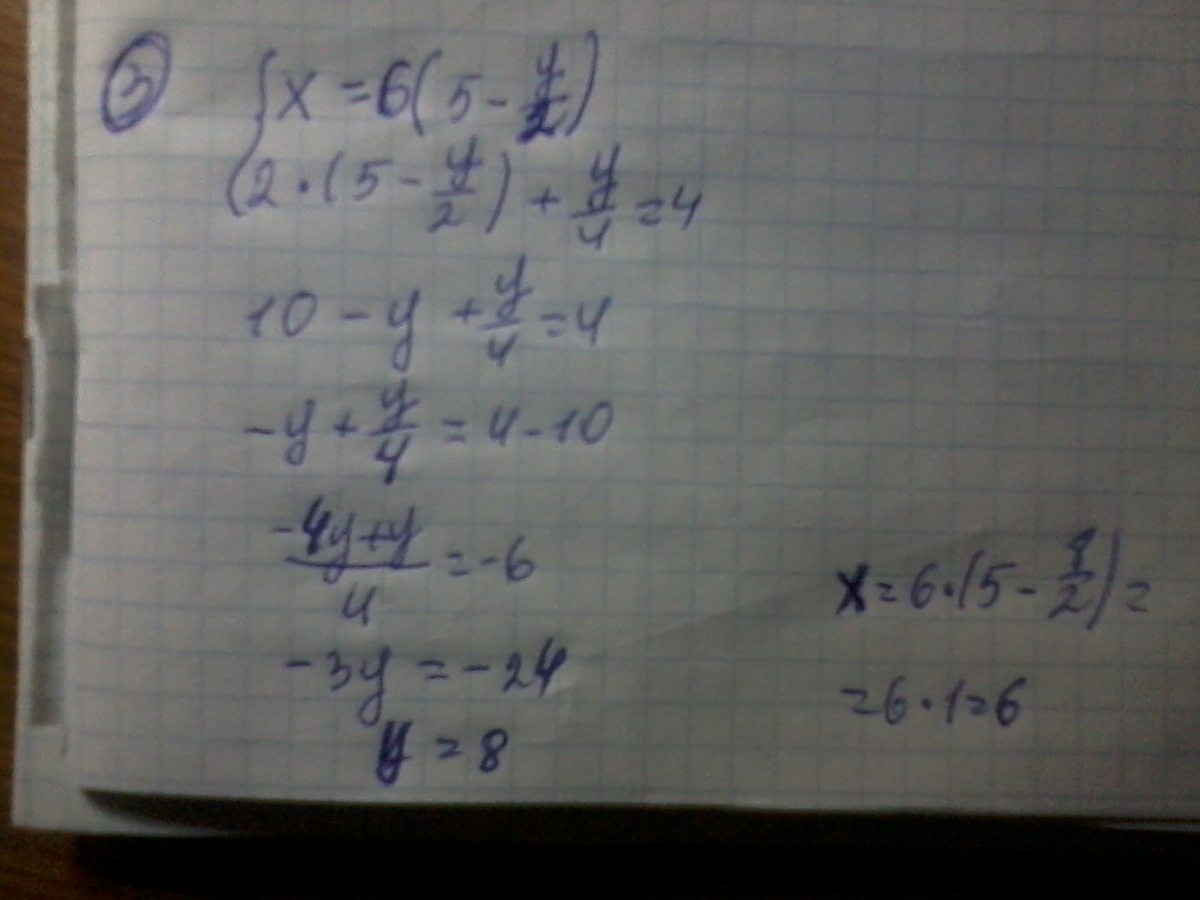 3
{ x = 6(5 - y/2)
2·(5 - y/2) + y/4 = 4
10 - y + y/4 = 4
-y + y/4 = 4 - 10
(-4y+y)/4 = -6
-3y = -24
y = 8
x = 6·(5 - 8/2) =
= 6·1 = 6